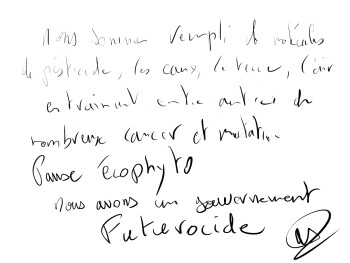 Nous sommes rempli de molécules
de pesticide, les eaux, la terre, l'air
entrainant entre autres de
nombreux cancer et mutation.
Pause Écophyto
nous avons un gouvernement
Futurocide